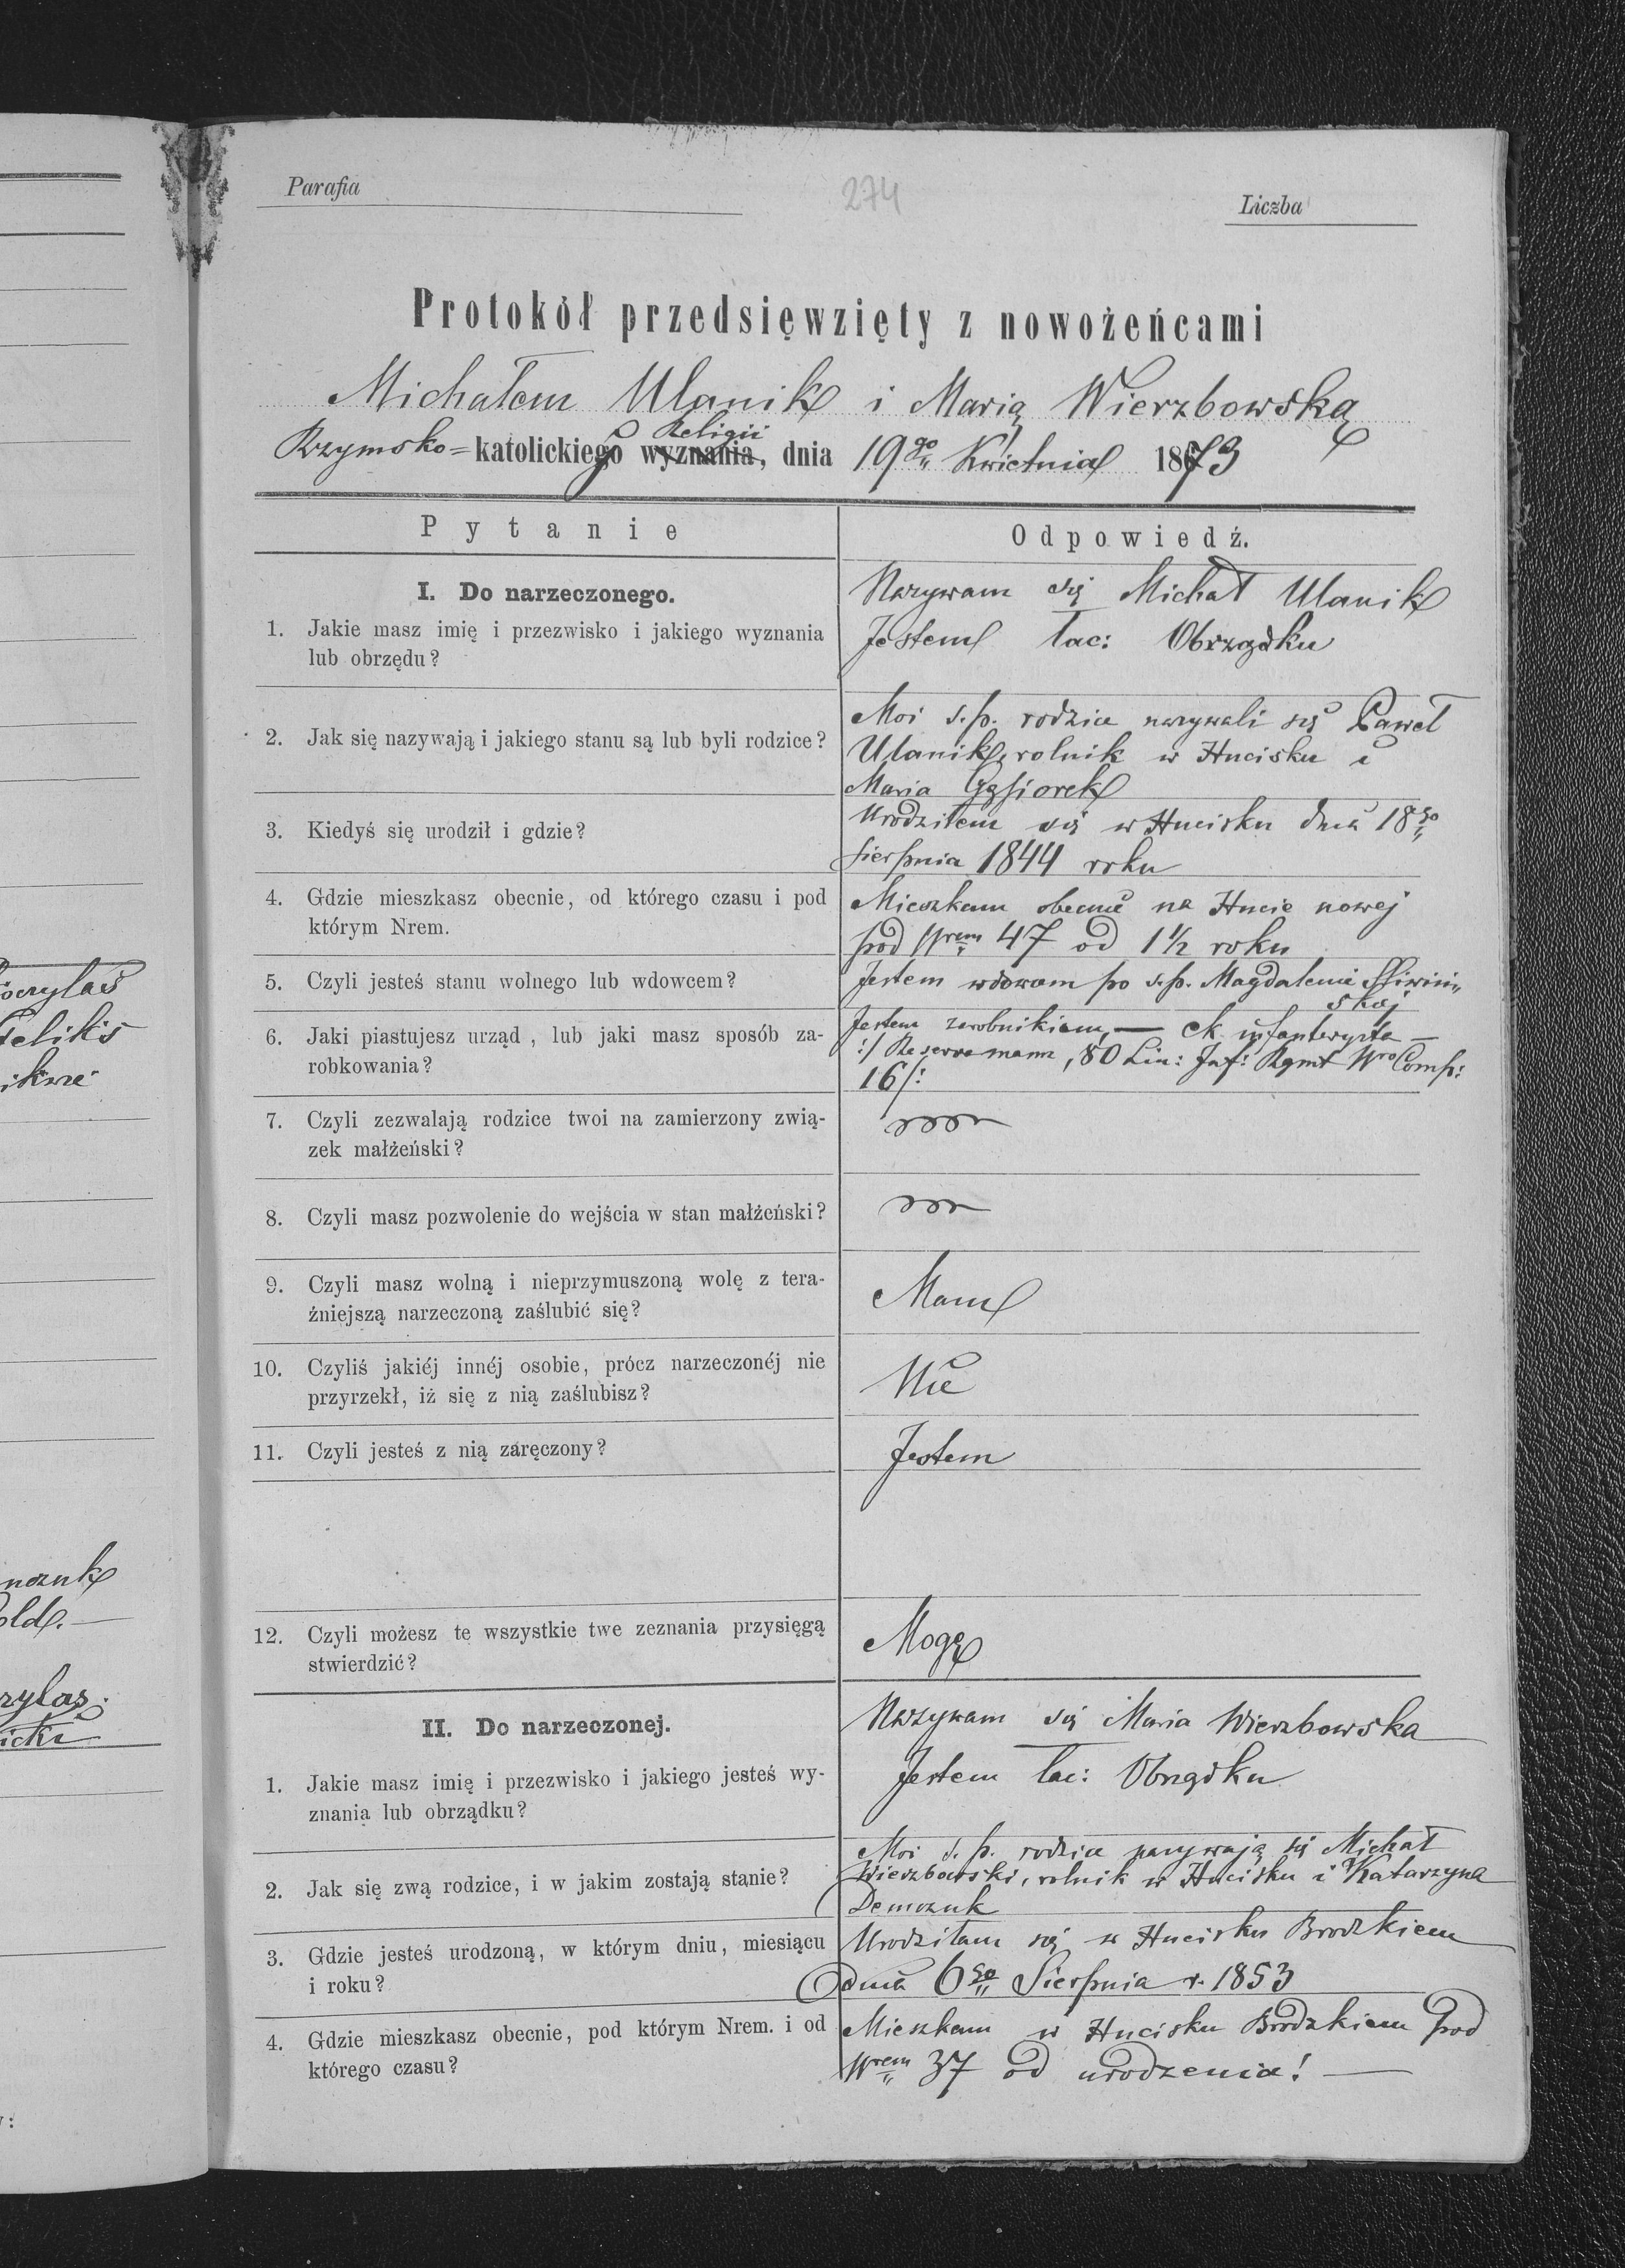 Parafia
274
Liczba
Protokół przedsięwzięty z nowożeńcami
Michałem Ulanik i Marią Wierzbowską
Religii
Rzymsko=katolickiego wyznania, dnia 19go Kwietnia 1873
Pytanie
Odpowiedź.
I. Do narzeczonego.
1. Jakie masz imię i przezwisko i jakiego wyznania
lub obrzędu?
Nazywam się Michał Ulanik
Jestem łac: Obrządku
2. Jak się nazywają i jakiego stanu są lub byli rodzice?
Moi s.p. rodzice nazywali się Paweł
Ulanik, rolnik w Hucisku i
Maria Gąsiorek
3. Kiedyś się urodził i gdzie?
Urodziłem się w Hucisku dnia 18go
Sierpnia 1844 roku
4. Gdzie mieszkasz obecnie, od którego czasu i pod
którym Nrem.
Mieszkam obecnie na Hucie nowej
pod Nrem 47 od 1½ roku
5. Czyli jesteś stanu wolnego lub wdowcem?
Jestem wdowcem po s.p. Magdalenie Śliwiń„
skiej
6. Jaki piastujesz urząd, lub jaki masz sposób za-
robkowania?
Jestem zarobnikiem, — ck. infanterysta —
:/ Reservemann, 80 Lin: Inf: Rgmt Nro Comp:
16/:
7. Czyli zezwalają rodzice twoi na zamierzony zwią-
zek małżeński?
8. Czyli masz pozwolenie do wejścia w stan małżeński?
9. Czyli masz wolną i nieprzymuszoną wolę z tera-
źniejszą narzeczoną zaślubić się?
Mam
10. Czyliś jakiéj innéj osobie, prócz narzeczonéj nie
przyrzekł, iż się z nią zaślubisz?
Nie
11. Czyli jesteś z nią zaręczony?
Jestem
12. Czyli możesz te wszystkie twe zeznania przysięgą
stwierdzić?
Mogę
II. Do narzeczonej.
1. Jakie masz imię i przezwisko i jakiego jesteś wy-
znania lub obrządku?
Nazywam się Maria Wierzbowska
Jestem łac: Obrządku
2. Jak się zwą rodzice, i w jakim zostają stanie?
Moi s.p. rodzice nazywają się Michał
Wierzbowski, rolnik w Hucisku i Katarzyna
Demczuk
3. Gdzie jesteś urodzoną, w którym dniu, miesiącu
i roku?
Urodziłam się w Hucisku Brodzkiem
dnia 6go Sierpnia r. 1853
4. Gdzie mieszkasz obecnie, pod którym Nrem. i od
którego czasu?
Mieszkam w Hucisku Brodzkiem pod
Nrem 37 od urodzenia! —